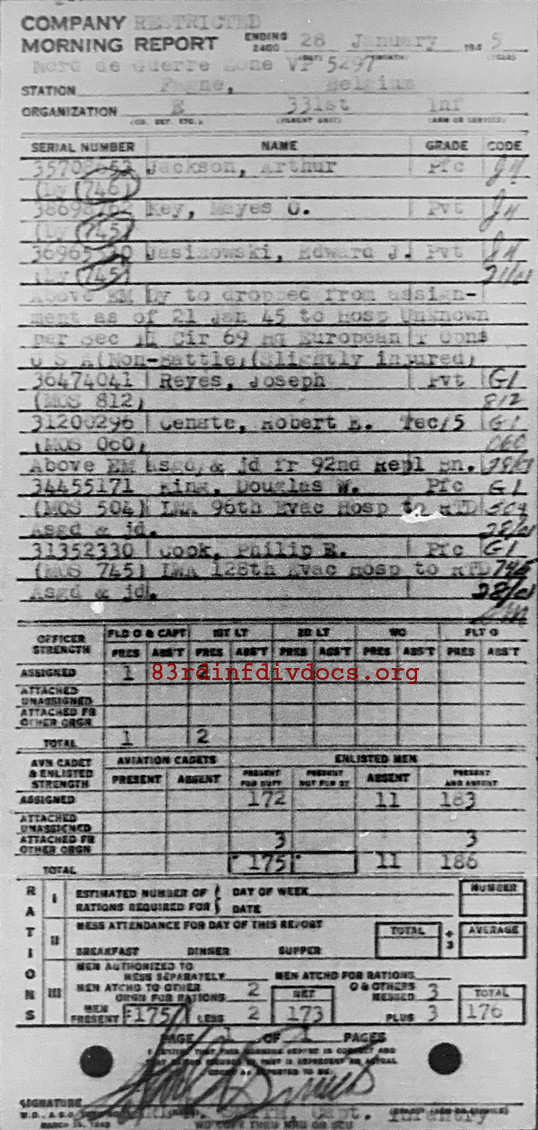 COMPANY RESTRICTED
MORNING REPORT ENDING 2400 28 January 1945
Nord de Guerre Zone VP 5297
STATION Fagne, Belgium
ORGANIZATION E 331st Inf
(CO. DET. ETC.) (PARENT UNIT) (ARM OR SERVICE)
SERIAL NUMBER NAME GRADE CODE
Jackson, Arthur Pfc
(Dy (746)
Key, Mayes O. Pvt
(Dy (745)
Jasinowski, Edward J. Pvt
(Dy (745) 21/01
Above EM Dy to dropped from assign-
ment as of 21 Jan 45 to Hosp Unknown
per Sec II Cir 69 Hq European T Opns
U S A (Non-Battle) (Slightly injured)
36474041 Reyes, Joseph Pvt G1
(MOS 812) 812
31200296 Cenate, Robert E. Tec/5 G1
(MOS 060) 060
Above EM asgd & jd fr 92nd Repl Bn. 28/01
34455171 King, Douglas W. Pfc G1
(MOS 504) LWA 96th Evac Hosp to RTD 504
Asgd & jd. 28/01
31352330 Cook, Philip E. Pfc G1
(MOS 745) LWA 128th Evac Hosp to RTD 745
Asgd & jd. 28/01
OFFICER STRENGTH FLD O & CAPT 1ST LT 2D LT WO FLT O
PRES ABS'T PRES ABS'T PRES ABS'T PRES ABS'T PRES ABS'T
ASSIGNED 1 2
83rdinfdivdocs.org
ATTACHED UNASSIGNED
ATTACHED FR OTHER ORGN
TOTAL 1 2
AVN CADET & ENLISTED STRENGTH AVIATION CADETS ENLISTED MEN
PRESENT ABSENT PRESENT FOR DUTY PRESENT NOT FOR DY ABSENT PRESENT AND ABSENT
ASSIGNED 172 11 183
ATTACHED UNASSIGNED
ATTACHED FR OTHER ORGN 3 3
TOTAL 175 11 186
RATIONS
I ESTIMATED NUMBER OF RATIONS REQUIRED FOR DAY OF WEEK DATE NUMBER
II MESS ATTENDANCE FOR DAY OF THIS REPORT TOTAL ÷ 3 AVERAGE
BREAKFAST DINNER SUPPER
III MEN AUTHORIZED TO MESS SEPARATELY MEN ATCHD FOR RATIONS
MEN ATCHD TO OTHER ORGN FOR RATIONS 2 NET O & OTHERS MESSED 3 TOTAL
MEN PRESENT 175 LESS 2 173 PLUS 3 176
PAGE 1 OF 1 PAGES
SIGNATURE
Capt. Infantry